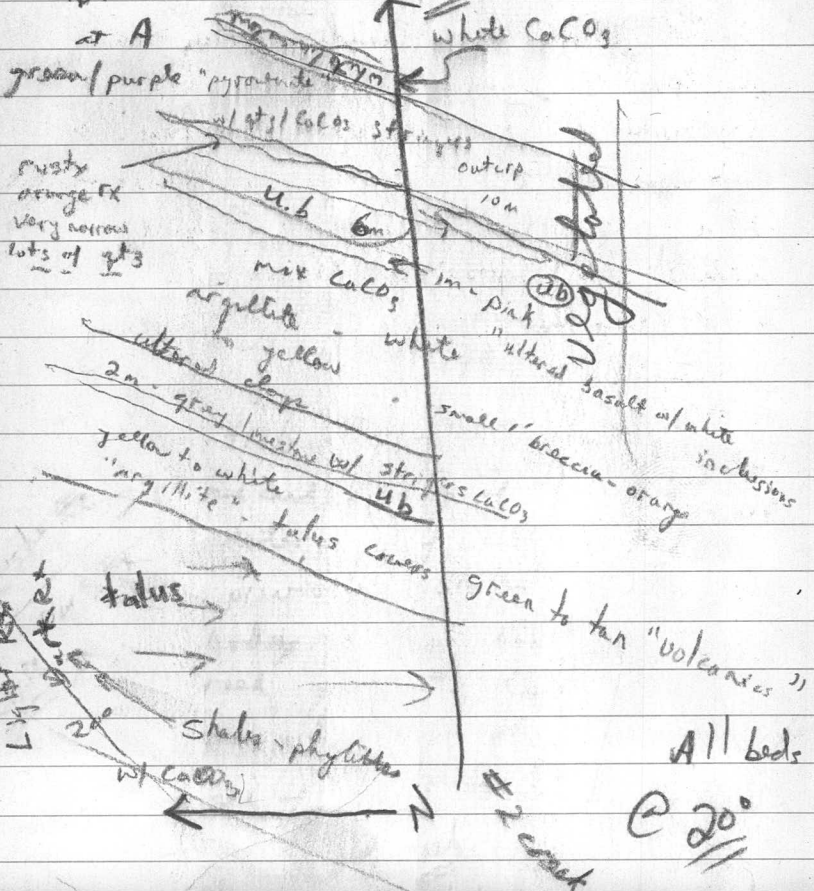 at A
white CaCO3
green/purple "pyroxenite"
w/ qtz/CaCO3 stringers
outcrp
10m
rusty
orange rx
very narrow
lots of qtz
u.b
6m
vegetated
mix CaCO3
1m - pink
ub
argillite
- yellow
white
"altered basalt w/ white
inclussions
altered clay
small "breccia - orange
2m - grey limestone w/ stringers CaCO3
ub
yellow to white
"argillite" - talus covers
talus
green to tan "volcanics"
20°
Shales - phyllites
w/ CaCO3
N
#2 creek
All beds
@ 20°